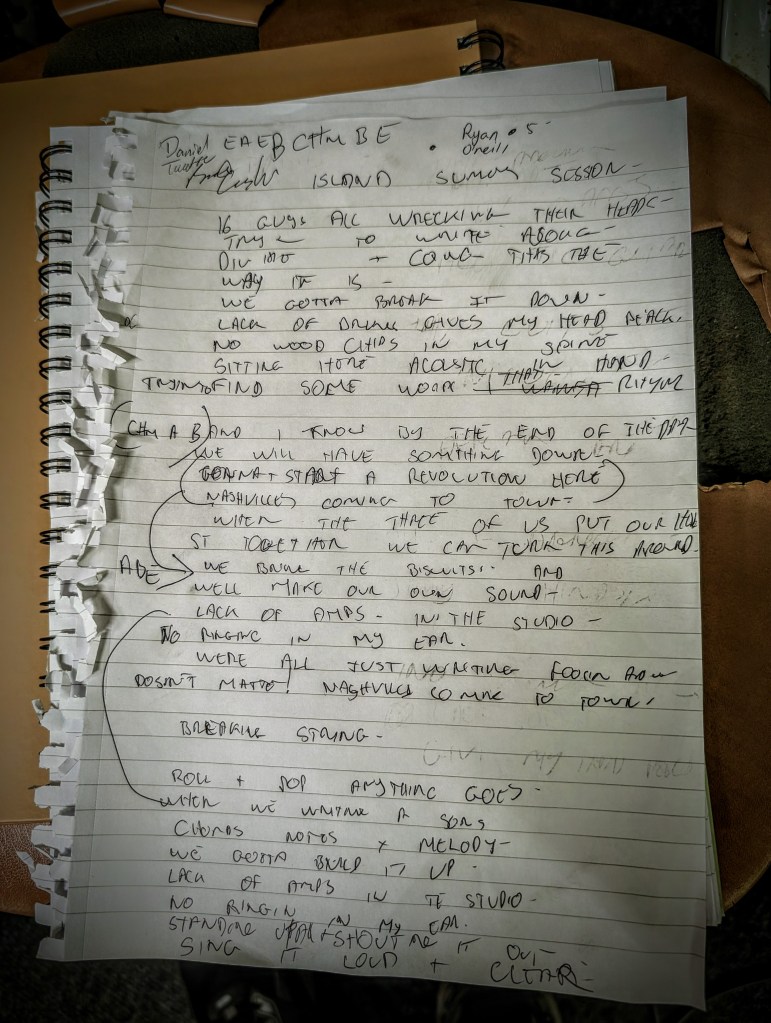 Daniel EAEB C#m B E • Ryan • 5
O'neill
ISLAND SESSION -
16 GUYS ALL WRECKING THEIR HEADS -
TO WRITE
+ THIS THE
WAY IT IS -
WE GOTTA BREAK IT DOWN -
LACK OF DRINK GIVES MY HEAD
NO WOOD CHIPS IN MY SPINE
SITTING HERE ACOUSTIC IN HAND -
FIND SOME THAT RHYME
C#m A B AND I KNOW BY THE END OF THE DAY
WE WILL HAVE SOMETHING DOWN
GONNA START A REVOLUTION HERE
NASHVILLES COMING TO TOWN -
WHEN THE THREE OF US PUT OUR
TOGETHER WE CAN TURN THIS AROUND -
ABE WE BRING THE BISCUITS. AND
WELL MAKE OUR OWN SOUND -
LACK OF AMPS - IN THE STUDIO -
NO RINGING IN MY EAR.
WERE ALL JUST WRITING
DOSN'T MATTER! NASHVILLES COMING TO TOWN,
BREAKING STRING -
ROLL + POP ANYTHING GOES -
WHEN WE WRITING A SONG
CHORDS NOTES + MELODY -
WE GOTTA BUILD IT UP -
LACK OF AMPS IN TE STUDIO -
NO RINGIN IN MY EAR.
STANDING SHOUT IT OUT -
SING IT LOUD + CLEAR -